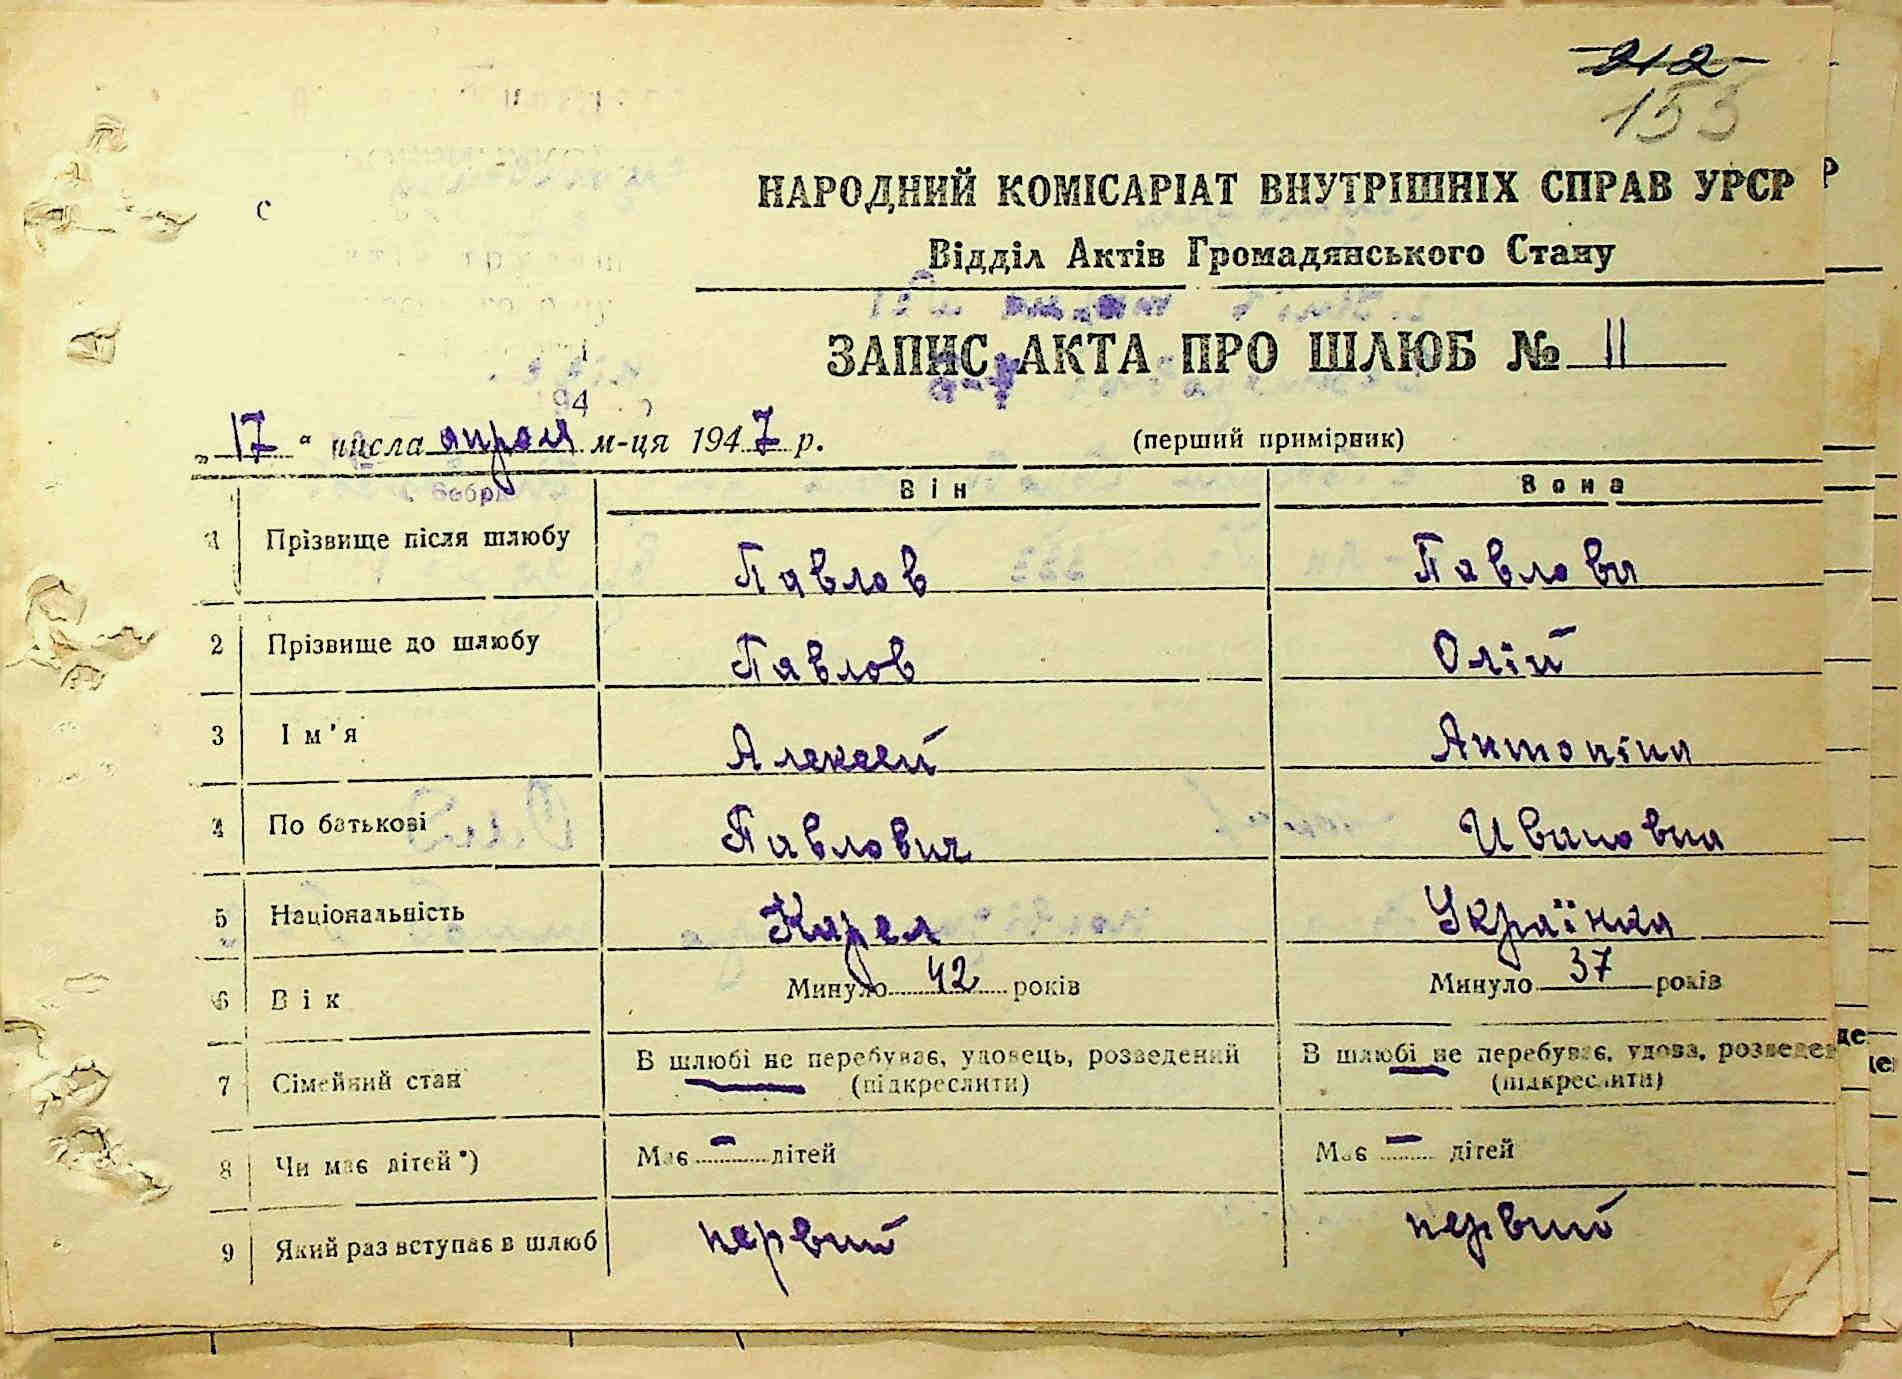 212
155
НАРОДНИЙ КОМІСАРІАТ ВНУТРІШНІХ СПРАВ УРСР
Відділ Актів Громадянського Стану
ЗАПИС АКТА ПРО ШЛЮБ № 11
„17“ числа апреля м-ця 1947 р. (перший примірник)
Він Вона
1 Прізвище після шлюбу Павлов Павлова
2 Прізвище до шлюбу Павлов Олій
3 Ім'я Алексей Антоніна
4 По батькові Павлович Ивановна
5 Національність Карел Українка
6 Вік Минуло 42 років Минуло 37 років
7 Сімейний стан В шлюбі не перебуває, удовець, розведений В шлюбі не перебуває, удова, розведе
(підкреслити) (підкреслити)
8 Чи має дітей*) Має — дітей Має — дітей
9 Який раз вступає в шлюб первий первий